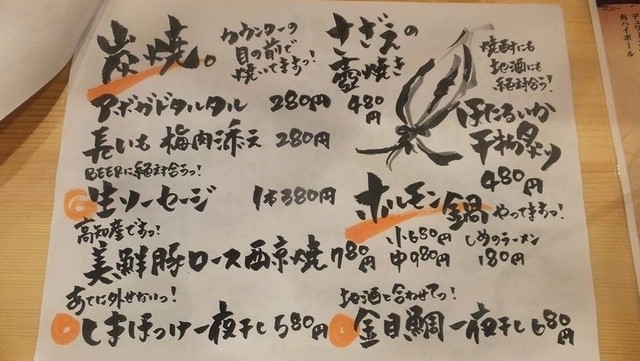 炭焼。
カウンターの
目の前で
焼いてますっ!
アボガドタルタル 280円
長いも 梅肉添え 280円
BEERに絶対合うっ!
生ソーセージ 1本380円
高知産ですっ!
美鮮豚ロース西京焼 780円
あてに外せないっ!
しまほっけ一夜干し 580円
さざえの
壺焼き
480円
焼酎にも
地酒にも
絶対合う!
ほたるいか
干物炙り
480円
ホルモン鍋 やってますっ!
小680円 しめのラーメン
中980円 180円
地酒と合わせてっ!
金目鯛一夜干し 680円
角ハイボール